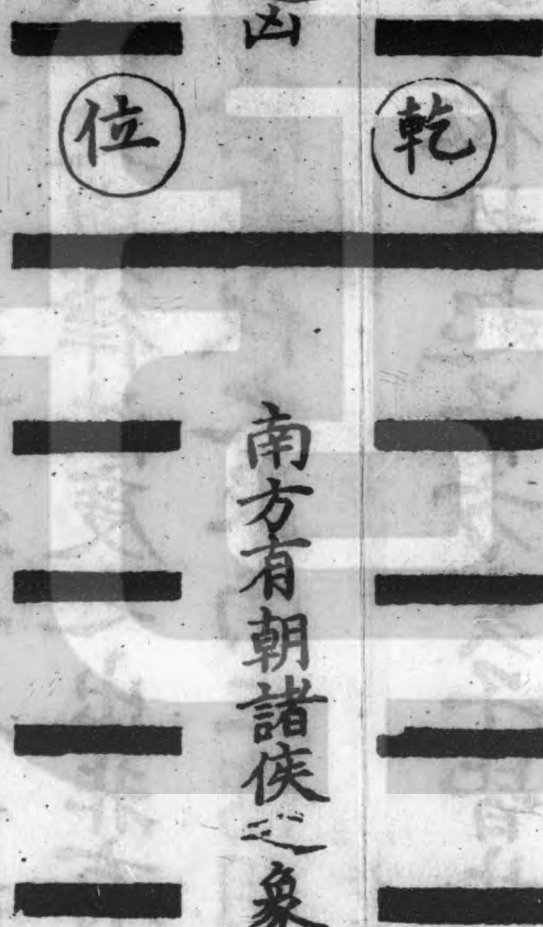 凶
乾位
南方有朝諸侯之象